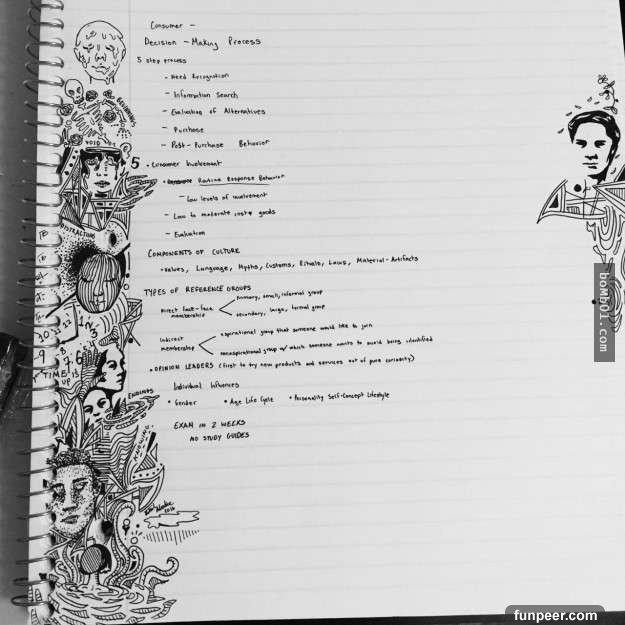 Consumer -
Decision - Making Process
5 step process
- Need Recognition
- Information Search
- Evaluating of Alternatives
- Purchase
- Post-Purchase Behavior
5 • Consumer Involvement
• Routine Response Behavior
- Low levels of involvement
- Low to moderate cost goods
- Evaluation
COMPONENTS OF CULTURE
• Values, Language, Myths, Customs, Rituals, Laws, Material-Artifacts
TYPES OF REFERENCE GROUPS
Direct face-face membership
primary, small, informal group
secondary, large, formal group
Indirect membership
aspirational group that someone would like to join
nonaspirational group w/ which someone wants to avoid being identified
• OPINION LEADERS (first to try new products and services out of pure curiosity)
Individual Influences
• Gender • Age Life Cycle • Personality Self-Concept Lifestyle
EXAM IN 2 WEEKS
NO STUDY GUIDES
BEGINNING
VOID
DISTRACTIONS
TIME IS UP
ENDINGS
2016
bomb01.com
funpeer.com